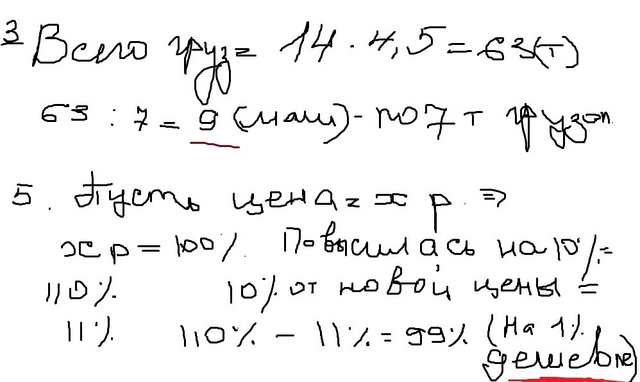 3 Всего груз= 14 · 4,5 = 63(т)
63 : 7 = 9 (маш) - по 7 т грузоп.
5. Пусть цена = x р. ⇒
x р = 100%. Повысилась на 10% =
110%. 10% от новой цены =
11% 110% - 11% = 99% (на 1%
дешевле)